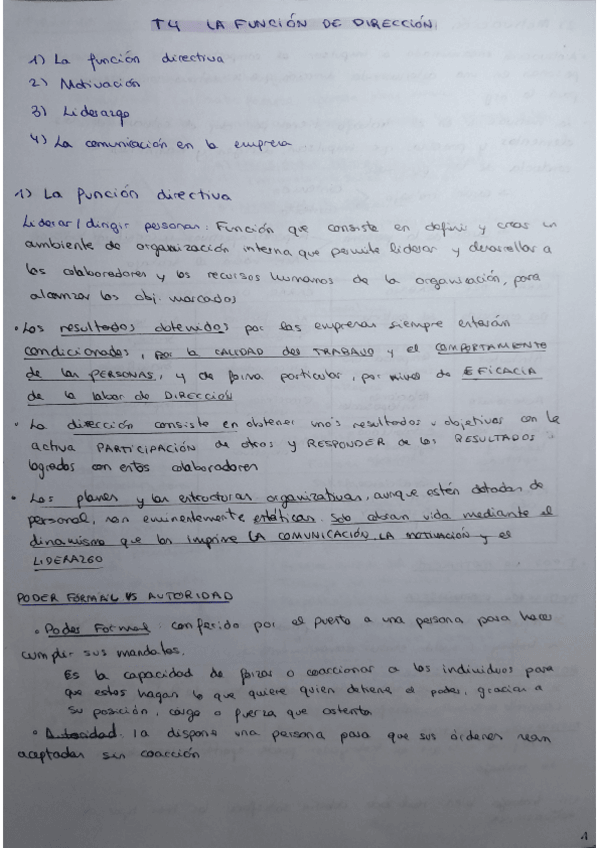 T4 LA FUNCIÓN DE DIRECCIÓN
1) La función directiva
2) Motivación
3) Liderazgo
4) La comunicación en la empresa
1) La función directiva
Liderar/dirigir personas: Función que consiste en definir y crear un
ambiente de organización interna que permite liderar y desarrollar a
los colaboradores y los recursos humanos de la organización, para
alcanzar los obj. marcados
• Los resultados obtenidos por las empresas siempre estarán
condicionados, por la CALIDAD del TRABAJO y el COMPORTAMIENTO
de las PERSONAS, y de forma particular, por nivel de EFICACIA
de la labor de DIRECCIÓN
• La dirección consiste en obtener unos resultados u objetivos con la
activa PARTICIPACIÓN de otros y RESPONDER de los RESULTADOS
logrados con estos colaboradores
• Los planes y las estructuras organizativas, aunque estén dotadas de
personal, son eminentemente estáticas. Solo cobran vida mediante el
dinamismo que les imprime LA COMUNICACIÓN, LA MOTIVACIÓN y el
LIDERAZGO
PODER FORMAL VS AUTORIDAD
• Poder Formal: conferido por el puesto a una persona para hacer
cumplir sus mandatos.
Es la capacidad de forzar o coaccionar a los individuos para
que estos hagan lo que quiere quien detiene el poder, gracias a
su posición, cargo o fuerza que ostenta
• Autoridad: la dispone una persona para que sus órdenes sean
aceptadas sin coacción
1